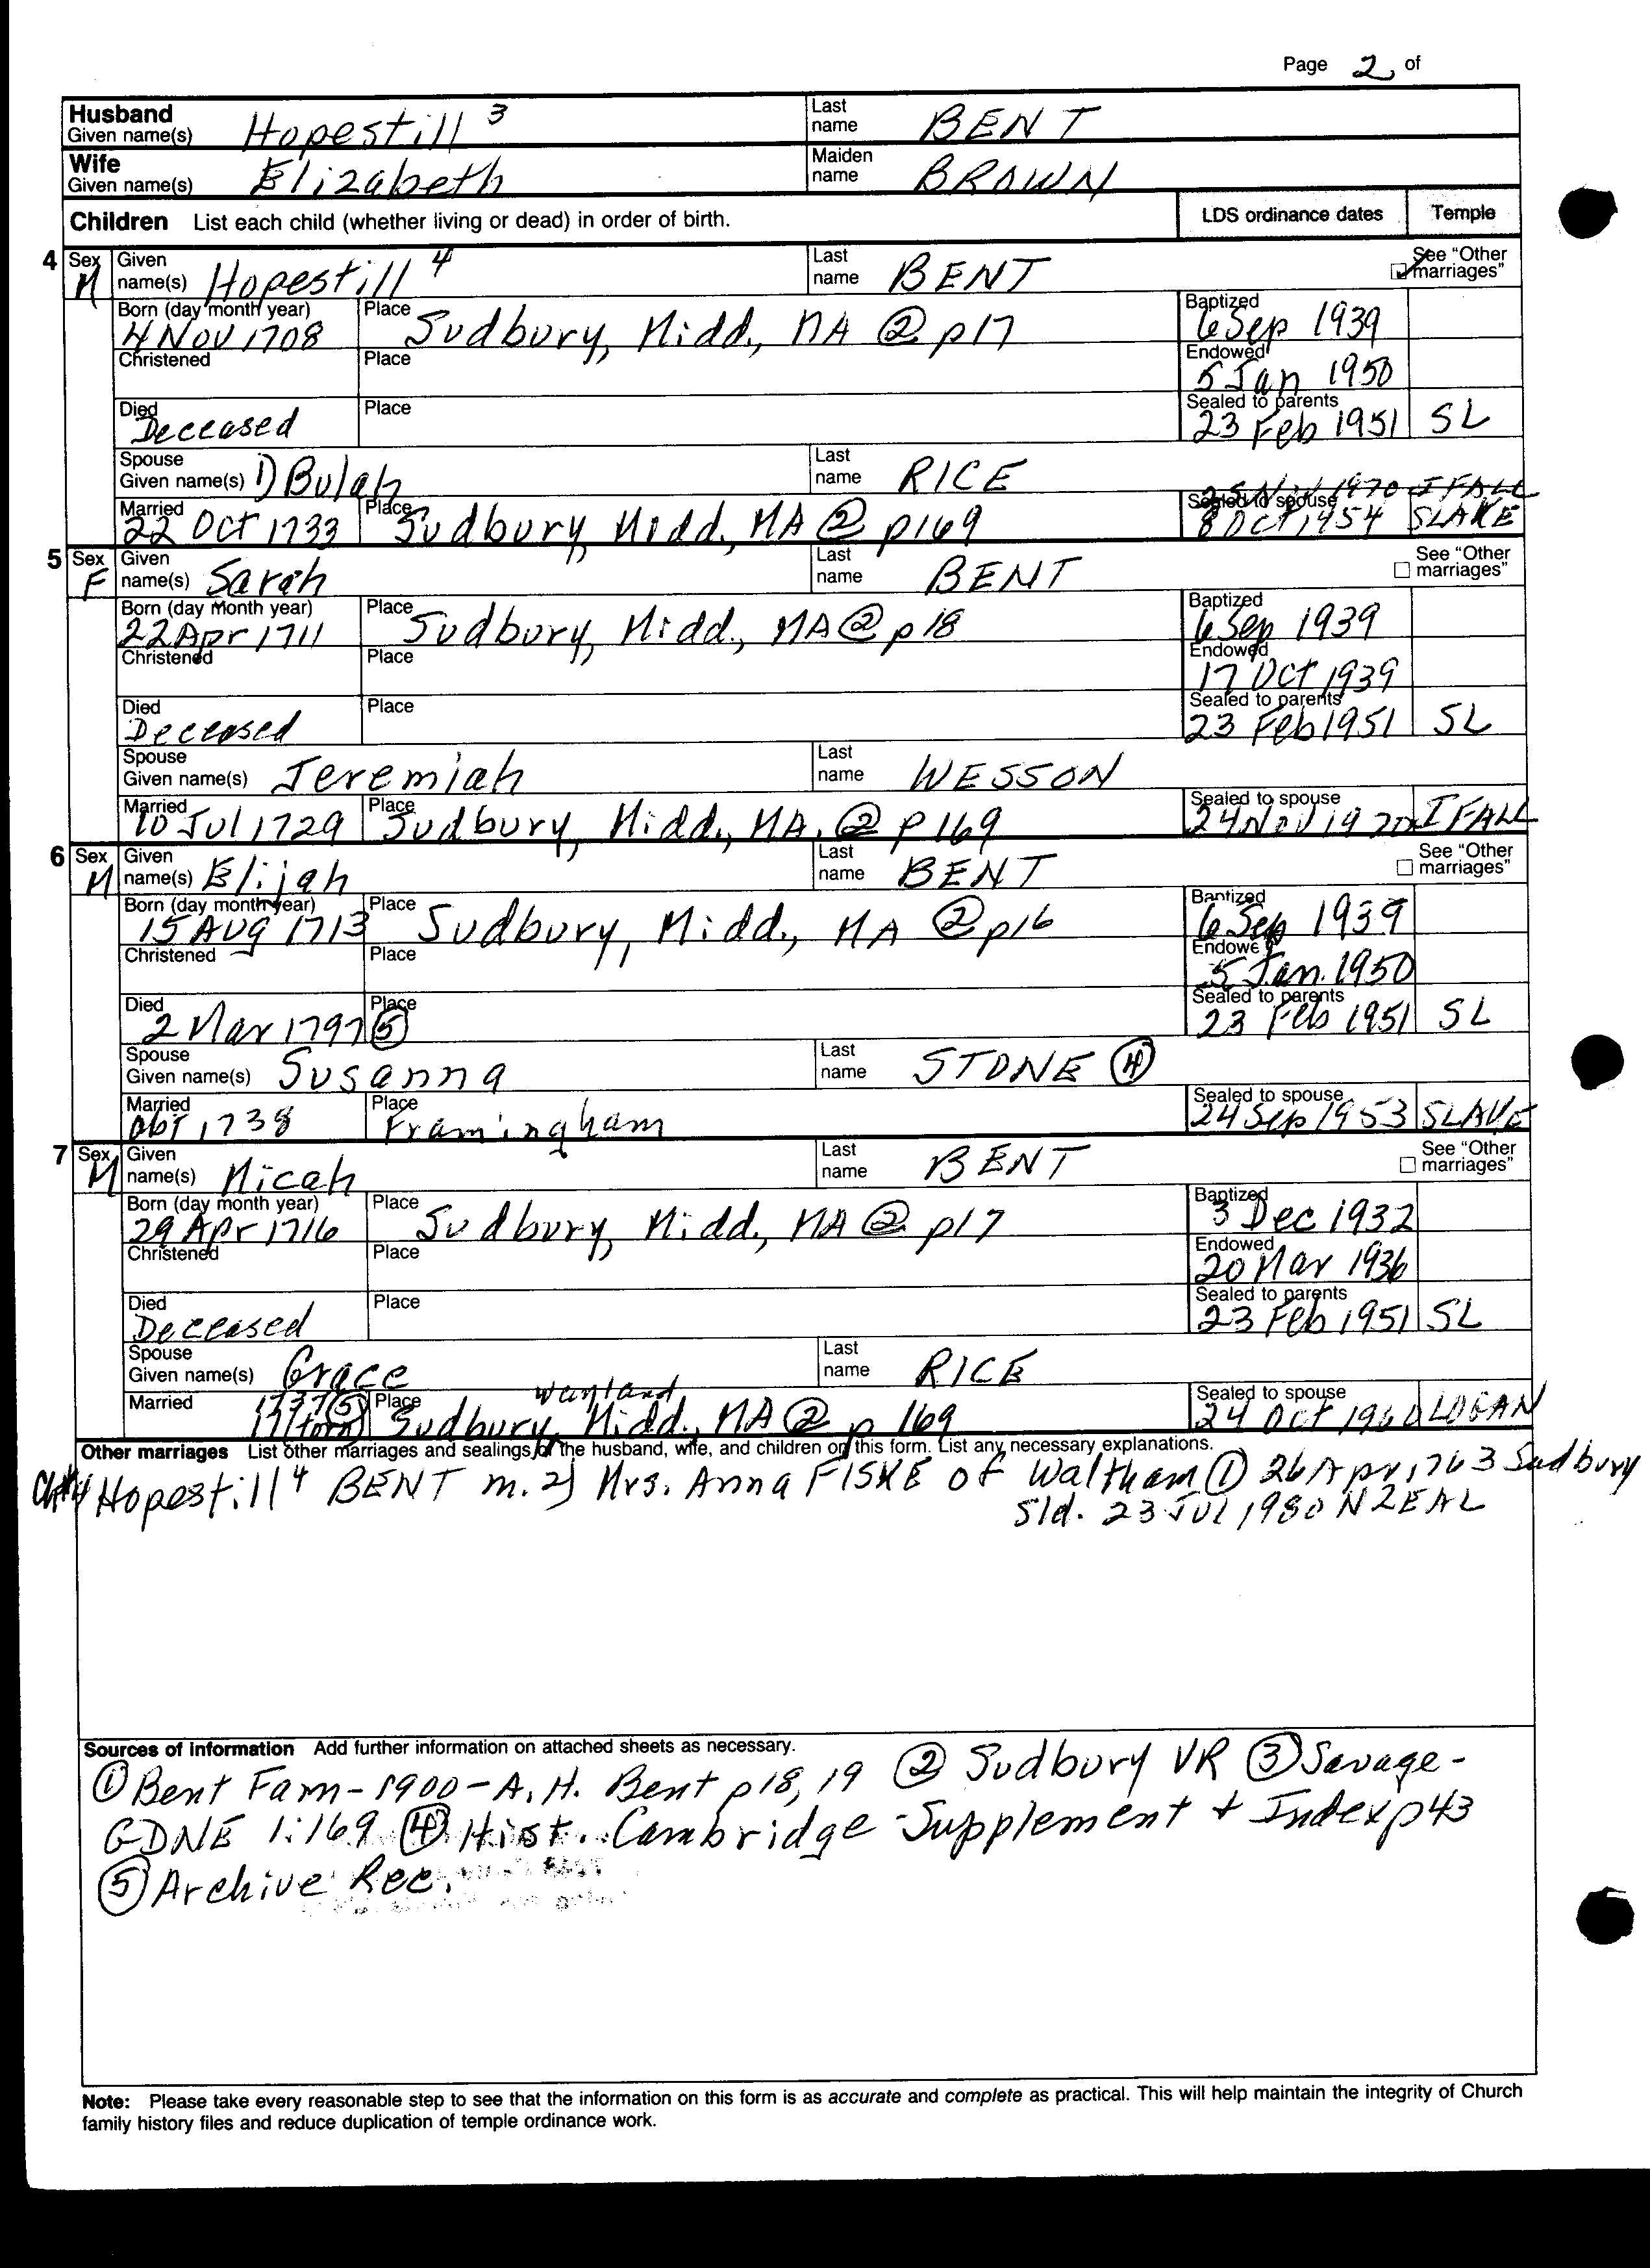 Page 2 of
Husband
Given name(s) Hopestill 3 Last name BENT
Wife
Given name(s) Elizabeth Maiden name BROWN
Children List each child (whether living or dead) in order of birth. LDS ordinance dates Temple
4 Sex M Given name(s) Hopestill 4 Last name BENT See "Other marriages"
Born (day month year) 4 Nov 1708 Place Sudbury, Midd., MA ② p17 Baptized 6 Sep 1939
Christened Place Endowed 5 Jan 1950
Died Deceased Place Sealed to parents 23 Feb 1951 SL
Spouse Given name(s) 1) Bulah Last name RICE
Married 22 Oct 1733 Place Sudbury, Midd., MA ② p169 Sealed to spouse 8 Oct 1954 SLAKE
5 Sex F Given name(s) Sarah Last name BENT See "Other marriages"
Born (day month year) 22 Apr 1711 Place Sudbury, Midd., MA ② p18 Baptized 6 Sep 1939
Christened Place Endowed 17 Oct 1939
Died Deceased Place Sealed to parents 23 Feb 1951 SL
Spouse Given name(s) Jeremiah Last name WESSON
Married 10 Jul 1729 Place Sudbury, Midd., MA, ② p169 Sealed to spouse 24 Nov 1970 IFALL
6 Sex M Given name(s) Elijah Last name BENT See "Other marriages"
Born (day month year) 15 Aug 1713 Place Sudbury, Midd., MA ② p16 Baptized 6 Sep 1939
Christened Place Endowed 5 Jan. 1950
Died 2 Mar 1797 ⑤ Place Sealed to parents 23 Feb 1951 SL
Spouse Given name(s) Susanna Last name STONE ④
Married abt 1738 Place Framingham Sealed to spouse 24 Sep 1953 SLAKE
7 Sex M Given name(s) Micah Last name BENT See "Other marriages"
Born (day month year) 29 Apr 1716 Place Sudbury, Midd., MA ② p17 Baptized 3 Dec 1932
Christened Place Endowed 20 Mar 1936
Died Deceased Place Sealed to parents 23 Feb 1951 SL
Spouse Given name(s) Grace Last name RICE
Wayland
Married 1737 ⑤ 17(torn) Place Sudbury, Midd., MA ② p 169 Sealed to spouse 24 Oct 1960 LOGAN
Other marriages List other marriages and sealings of the husband, wife, and children on this form. List any necessary explanations.
Ch#4 Hopestill 4 BENT m. 2) Mrs. Anna FISKE of Waltham ① 26 Apr 1763 Sudbury
Sld. 23 JUL 1980 NZEAL
Sources of information Add further information on attached sheets as necessary.
① Bent Fam-1900-A.H. Bent p18, 19 ② Sudbury VR ③ Savage-
GDNE 1:169 ④ Hist. Cambridge-Supplement + Index p43
⑤ Archive Rec.
Note: Please take every reasonable step to see that the information on this form is as accurate and complete as practical. This will help maintain the integrity of Church
family history files and reduce duplication of temple ordinance work.